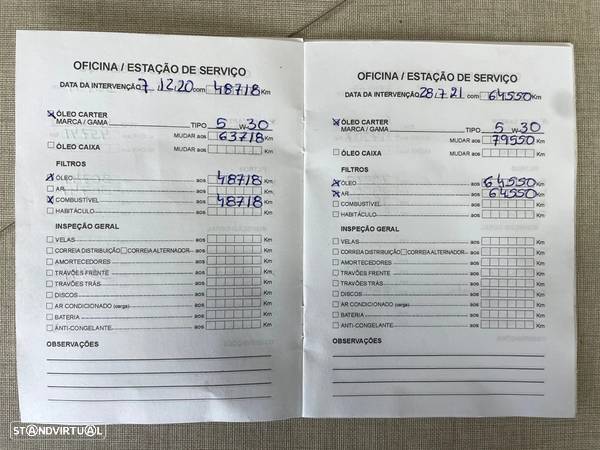 OFICINA / ESTAÇÃO DE SERVIÇO
DATA DA INTERVENÇÃO 7 12.20 com 48718 Km
ÓLEO CARTER
MARCA / GAMA TIPO 5 W-30
MUDAR aos 63718 Km
ÓLEO CAIXA
FILTROS
ÓLEO aos 48718 Km
AR aos Km
COMBUSTÍVEL aos 48718 Km
HABITÁCULO aos Km
INSPEÇÃO GERAL
VELAS aos Km
CORREIA DISTRIBUIÇÃO CORREIA ALTERNADOR aos Km
AMORTECEDORES aos Km
TRAVÕES FRENTE aos Km
TRAVÕES TRÁS aos Km
DISCOS aos Km
AR CONDICIONADO (carga) aos Km
BATERIA aos Km
ANTI-CONGELANTE aos Km
OBSERVAÇÕES
OFICINA / ESTAÇÃO DE SERVIÇO
DATA DA INTERVENÇÃO 28.7.21 com 64550 Km
ÓLEO CARTER
MARCA / GAMA TIPO 5 W-30
MUDAR aos 79550 Km
ÓLEO CAIXA
FILTROS
ÓLEO aos 64550 Km
AR aos 64550 Km
COMBUSTÍVEL aos Km
HABITÁCULO aos Km
INSPEÇÃO GERAL
VELAS aos Km
CORREIA DISTRIBUIÇÃO CORREIA ALTERNADOR aos Km
AMORTECEDORES aos Km
TRAVÕES FRENTE aos Km
TRAVÕES TRÁS aos Km
DISCOS aos Km
AR CONDICIONADO (carga) aos Km
BATERIA aos Km
ANTI-CONGELANTE aos Km
OBSERVAÇÕES
STANDVIRTUAL